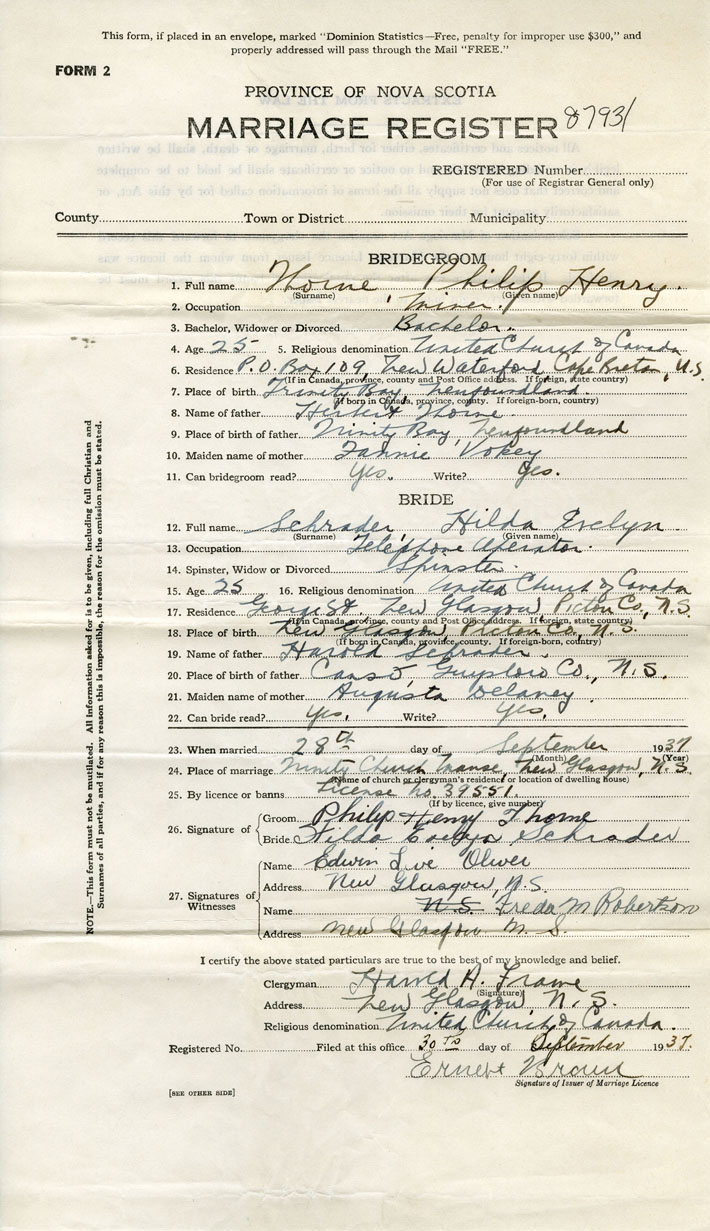 This form, if placed in an envelope, marked "Dominion Statistics—Free, penalty for improper use $300," and
properly addressed will pass through the Mail "FREE."
FORM 2
PROVINCE OF NOVA SCOTIA
MARRIAGE REGISTER 87931
REGISTERED Number
(For use of Registrar General only)
County Town or District Municipality
BRIDEGROOM
1. Full name Thorne Philip Henry.
(Surname) (Given name)
2. Occupation Miner.
3. Bachelor, Widower or Divorced Bachelor.
4. Age 25 5. Religious denomination United Church of Canada
6. Residence P.O. Box 109, New Waterford, Cape Breton, N.S.
(If in Canada, province, county and Post Office address. If foreign, state country)
7. Place of birth Trinity Bay, Newfoundland.
(If born in Canada, province, county. If foreign-born, country)
8. Name of father Herbert Thorne
9. Place of birth of father Trinity Bay, Newfoundland
10. Maiden name of mother Fannie Vokey
11. Can bridegroom read? Yes. Write? Yes.
BRIDE
12. Full name Schrader, Hilda Evelyn.
(Surname) (Given name)
13. Occupation Telephone Operator.
14. Spinster, Widow or Divorced Spinster.
15. Age 25 16. Religious denomination United Church of Canada
17. Residence George St. New Glasgow, Pictou Co., N.S.
(If in Canada, province, county and Post Office address. If foreign, state country)
18. Place of birth New Glasgow, Pictou Co., N.S.
(If born in Canada, province, county. If foreign-born, country)
19. Name of father Harold Schrader.
20. Place of birth of father Canso, Guysboro Co., N.S.
21. Maiden name of mother Augusta Delaney.
22. Can bride read? Yes. Write? Yes.
23. When married 28th day of September 1937
(Month) (Year)
24. Place of marriage Trinity Church Manse, New Glasgow, N.S.
(Name of church or clergyman's residence or location of dwelling house)
25. By licence or banns License No. 39551.
(If by licence, give number)
26. Signature of Groom Philip Henry Thorne
Bride Hilda Evelyn Schrader
27. Signatures of Witnesses Name Edwin Oliver
Address New Glasgow, N.S.
Name N.S. Freda M Robertson
Address New Glasgow N.S.
I certify the above stated particulars are true to the best of my knowledge and belief.
Clergyman Harold A. Frame
(Signature)
Address New Glasgow, N.S.
Religious denomination United Church of Canada.
Registered No. Filed at this office 30th day of September 1937.
Ernest Brown
Signature of Issuer of Marriage Licence
[SEE OTHER SIDE]
NOTE.—This form must not be mutilated. All information asked for is to be given, including full Christian and
Surnames of all parties, and if for any reason this is impossible, the reason for the omission must be stated.